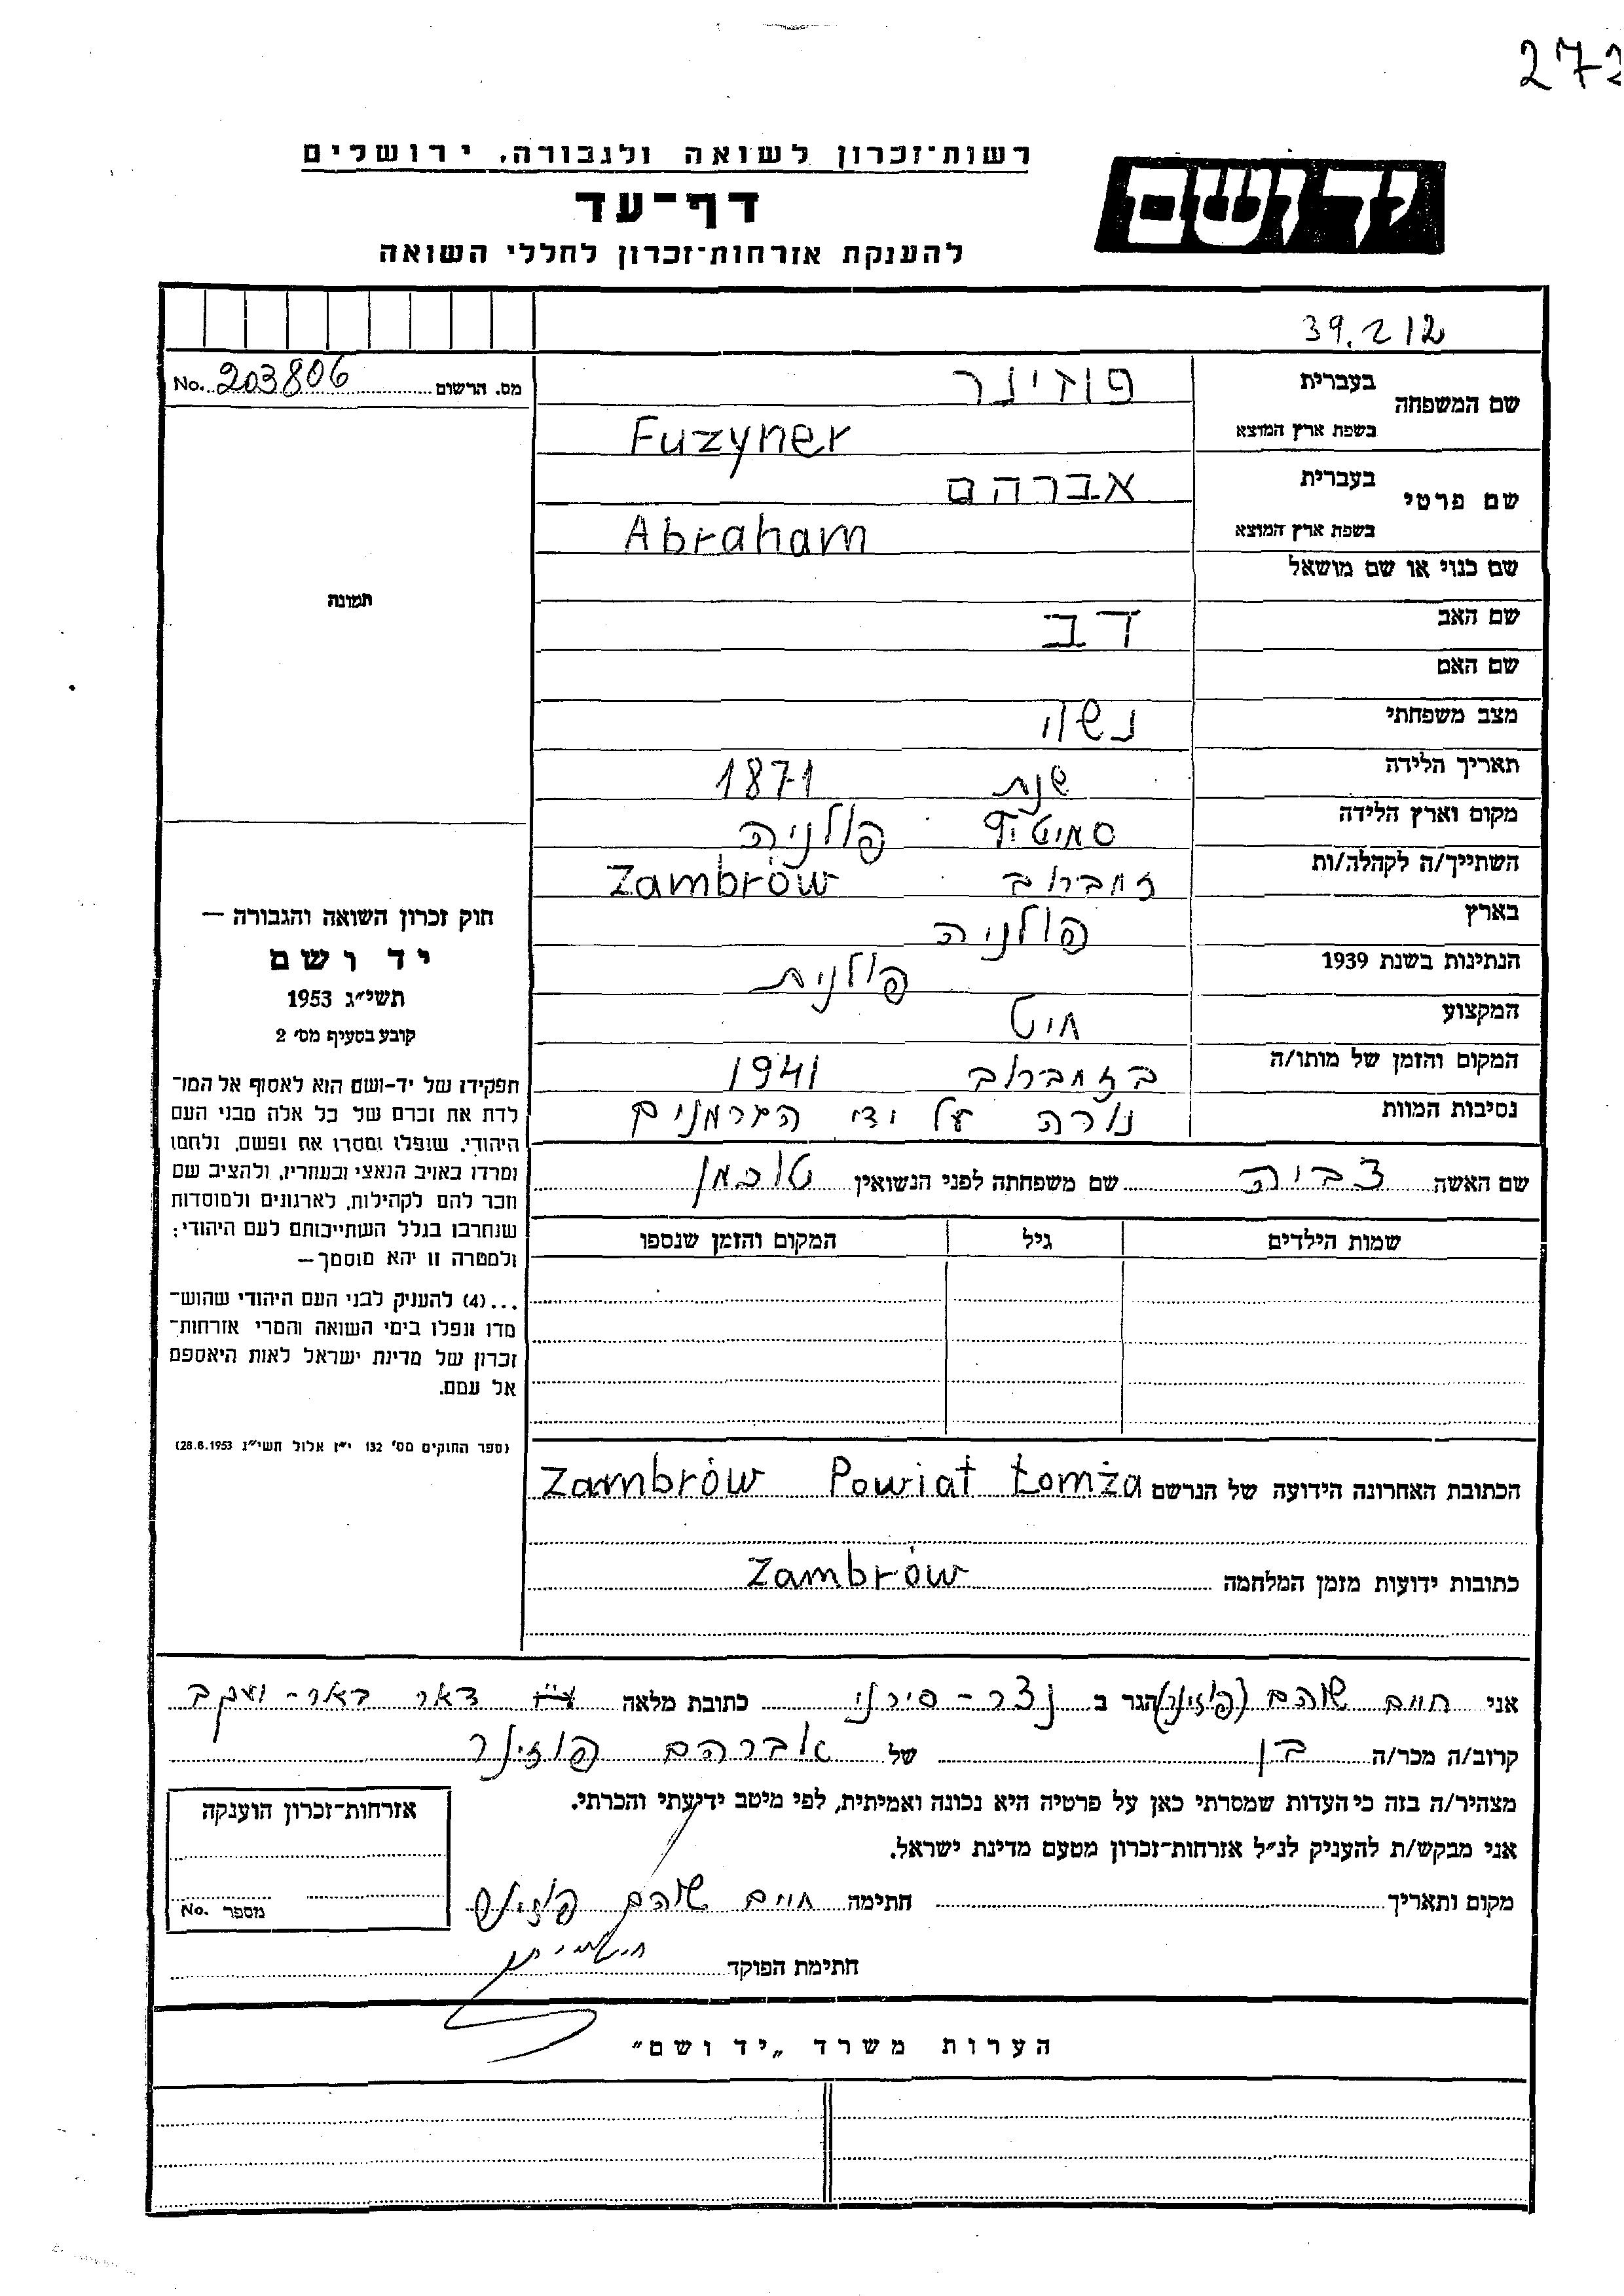 רשות־זכרון לשואה ולגבורה, ירושלים
יד ושם
דף־עד
להענקת אזרחות־זכרון לחללי השואה
39.212
מס. הרשום No. 203806
שם המשפחה בעברית פוזינר
בשפת ארץ המוצא Fuzyner
שם פרטי בעברית אברהם
בשפת ארץ המוצא Abraham
שם כנוי או שם מושאל
שם האב דב
שם האם
מצב משפחתי נשוי
תאריך הלידה שנת 1871
מקום וארץ הלידה פולניה
השתייך/ה לקהלה/ות זמברוב Zambrów
בארץ פולניה
הנתינות בשנת 1939 פולנית
המקצוע חיט
המקום והזמן של מותו/ה בזמברוב 1941
נסיבות המוות נורה על ידי הגרמנים
שם האשה צביה שם משפחתה לפני הנשואין טוכמן
שמות הילדים גיל המקום והזמן שנספו
הכתובת האחרונה הידועה של הנרשם Zambrów Powiat Łomża
כתובות ידועות מזמן המלחמה Zambrów
תמונה
חוק זכרון השואה והגבורה —
יד ושם
תשי״ג 1953
קובע בסעיף מס׳ 2
תפקידו של יד-ושם הוא לאסוף אל המו־
לדת את זכרם של כל אלה מבני העם
היהודי, שנפלו ומסרו את נפשם, נלחמו
ומרדו באויב הנאצי ובעוזריו, ולהציב שם
וזכר להם לקהילות, לארגונים ולמוסדות
שנחרבו בגלל השתייכותם לעם היהודי;
ולמטרה זו יהא מוסמך—
...(4) להעניק לבני העם היהודי שהוש־
מדו ונפלו בימי השואה והמרי אזרחות־
זכרון של מדינת ישראל לאות היאספם
אל עמם.
(ספר החוקים מס׳ 132 י״ז אלול תשי״ג 28.8.1953)
אני חיים שוהם (פוזינר) הגר ב נצר-סירני כתובת מלאה דאר באר-יעקב
קרוב/ה מכר/ה בן של אברהם פוזינר
מצהיר/ה בזה כי העדות שמסרתי כאן על פרטיה היא נכונה ואמיתית, לפי מיטב ידיעתי והכרתי.
אני מבקש/ת להעניק לנ״ל אזרחות־זכרון מטעם מדינת ישראל.
מקום ותאריך חתימה חיים שוהם פוזינר
חתימת הפוקד
אזרחות־זכרון הוענקה
מספר No.
הערות משרד „יד ושם״